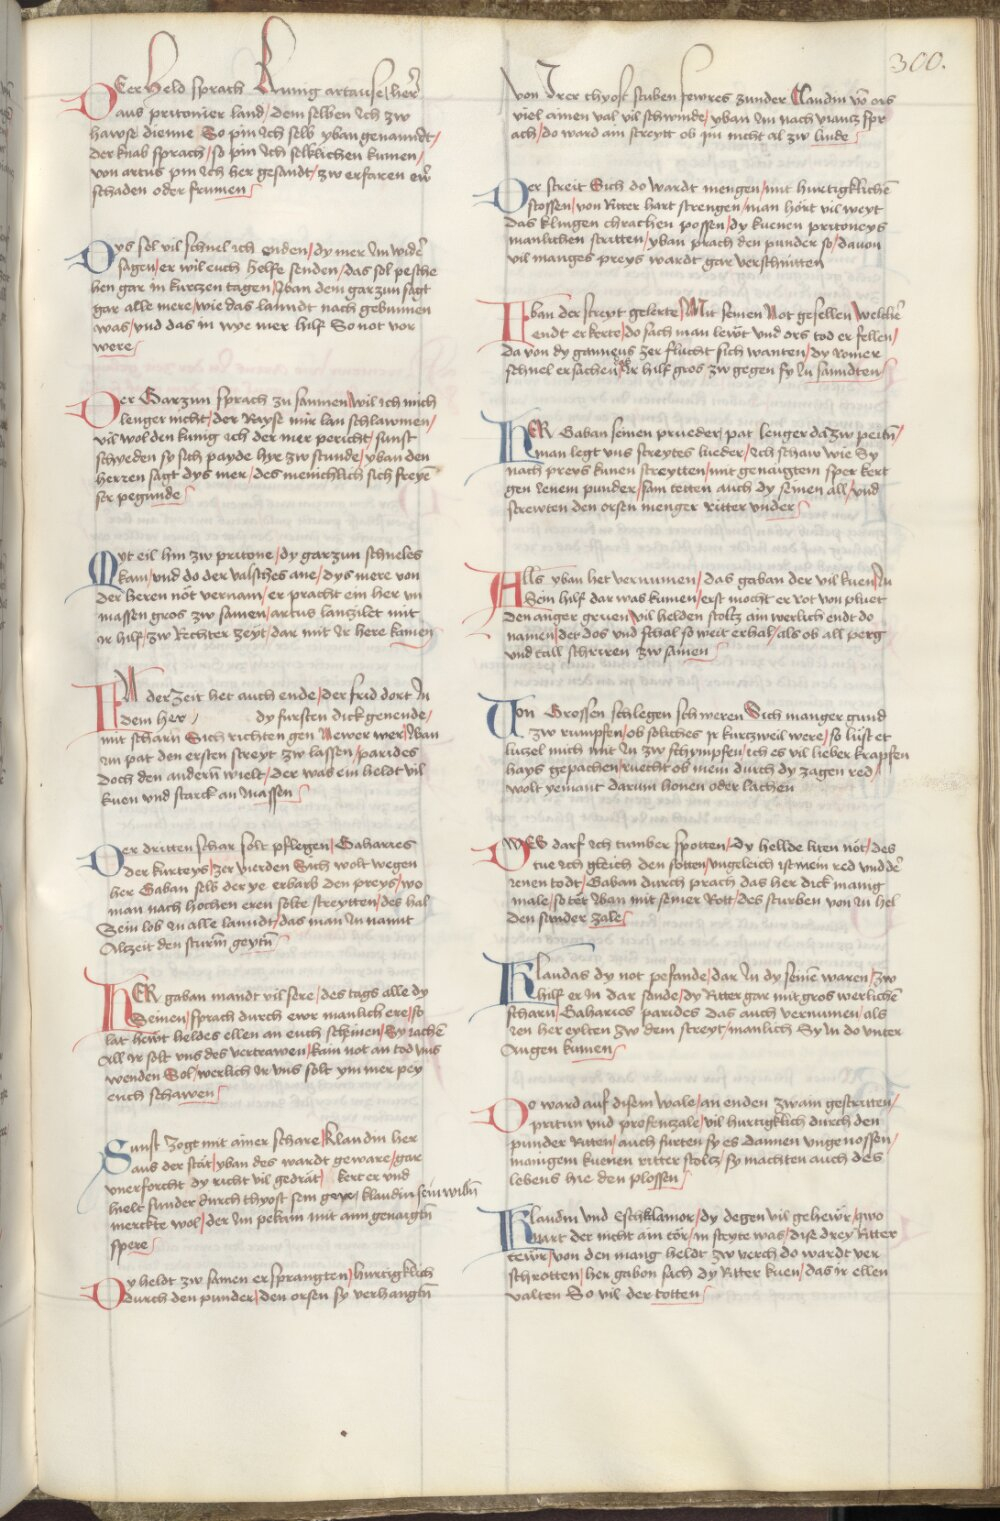 300.
DEer held sprach Kunig artause / her̄
aus pritonier land / dem selben ich zw
hawse dienne So pin ich selb yban genanndt /
der knab sprach / so pin ich selklichen kumen /
von artus pin ich her gesandt / zw erfaren ewr̄
schaden oder frumen
Dys sol vil schnel ich enden / dy mer Im wider̄
sagen / er wil euch helfe senden / das sol pesche
hen gar in kurtzen tagen / Yban dem garzun sagt
gar alle mere / wie das lanndt nach gebunnen
was / vnd das in wye mer hilf So not vor
were
Der Garzun sprach zu sannen / wil ich mich
lenger nicht / der Rayse mir lan schlawmen /
vil wol den kunig ich der mer pericht / sunst
schyeden sy sich payde hye zw stunde / yban den
herren sagt dys mer / des menichlich sich freyē
ser pegunde
Mit eil hin zw pritone / dy garzun schneles
kam / vnd do der valsches ane / dys mere von
der heren nöt vernam / er pracht ein her vn
massen gros zw samen / artus lanzilet mit
ir hilf / zw Rechter zeyt / dar mit Ir here kamen
IN der zeit het auch ende / der frid dort In
dem her / dy fursten dick genende /
mit scharn Sich richten gen Newer wer / Yban
im pat den ersten streyt zw lassen / parides
doch den andern wielt / der was ein heldt vil
kuen vnd starck an massen
Der dritten schar solt pflegen / Gaharies
der kurteys / zer vierden Sich wolt wegen
her Gaban selb der ye erbarb den preys / wo
man nach hochen eren solte streytten / des hal
Sein lob In alle lanndt / das man In nannt
Alzeit den sturm̄ geytn̄
HER gaban mandt vil sere / des tags alle dy
Seinen / sprach durch ewr manlich ere / so
lat hewt heldes ellen an euch scheinen / Sy iachē
All Ir solt vns des vertrawen / kain not an tod vns
wenden Sol / werlich Ir vns solt ymmer pey
euch schawen
Sunst zogt mit ainer schare / Klaudin her
aus der stat / yban des wardt geware / gar
vnerforcht dy richt vil gedrat / kert er vnd
hielt sunder durch thyost sein geger / klaudin sein wibn̄
merckte wol / der Im pekam mit aim genaigtn̄
spere
Dy heldt zw samen ersprangten / hurtigklich
durch den punder / den orsen sy verhangtn̄
von Irer thyost stuben fewres zunder Klaudin vō ors
viel ainen val vil schwinde / yban Im nach vianz spr
ach / do ward am streytt ob im nicht al zw linde
Der streit Sich do wardt mengen / mit hurtigklichē
stossen / von Ritter hart strengen / man hört vil weyt
das klingen chrachen possen / dy kuenen pritoneys
manlichen stritten / yban prach den punder so / davon
vil manges preys wardt gar verschnitten
Yban der streyt gelerte / Mit seinen Not gesellen / welher̄
endt er kerte / do sach man lewt vnd ors tod er fellen /
da von dy gamiens zer flucht sich wanten / dy romer
schnel ersachen / ir hilf gros zw gegen sy In sanndten
HER Gaban seinen prueder / pat lenger da zw peitn̄ /
man legt vns streytes lueder / ich schaw wie Sy
nach preys kunen streytten / mit genaigtem sper kert
gen ienem punder / sam tetten auch dy seinen all / vnd
strewten den orsen menger ritter vnder
Alls yban het vernumen / das gaban der vil kuen / In
Sein hilf dar was kumen / erst mocht er rot von pluet
den anger gruen / vil helden stoltz am werlich endt do
namen / det dos vnd schal so weit erhal / als ob all perg
vnd tall schriren zw samen
Von Grossen schlegen schweren Sich manger gund
zw rumpfen / ob solches ir kurzweil were / so lust et
luzel mich mit In zw schympfen / ich es vil lieber krapfen
hays gepachen / ruecht ob mein durch dy zagen red /
wolt yemant darum honen oder lachen
WES darf ich tumber spotten / dy hellde liten nöt / des
tue ich gleich den sotten / vngeleich ist mein red vnd der̄
ienen todt / Gaban durch prach das her dick manig
male / so tet Iban mit seiner Rott / des sturben von In hel
den sunder zale
Klaudas dy not pefande / dar In dy seinē waren / zw
hilf er In dar sande / dy Ritter gar mit gros werlichē
scharn / Gaharies parides das auch vernumen / als
ien her eylten zw dem streyt / manlich Sy In do vnter
Augen kumen
Do ward auf disem wale / an enden zwain gestritten /
pritun vnd profenzale / vil hurtigklich durch den
punder Ritten / auch furten sy es dannen vngenossen /
manigem kuenen ritter stoltz / sy machten auch des
lebens hie den plossen
Klaudin vnd Eschklamor / dy degen vil gehewr / gwo
wart der nicht ain tör / in streyte was / dise drey Ritter
tewr / von den mang heldt zw verch do wardt ver
schrotten / her gabon sach dy Ritter kuen / das ir ellen
valten So vil der totten